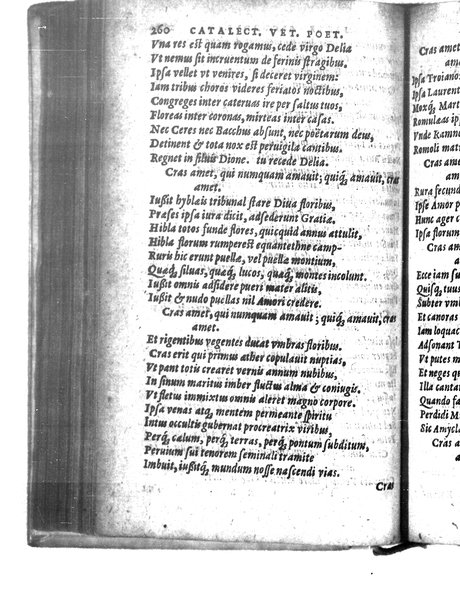 260 CATALECT. VET. POET.
Vna res est quam rogamus, cede virgo Delia
Vt nemus sit incruentum de ferinis stragibus.
Ipsa vellet vt venires, si deceret virginem:
Iam tribus choros videres feriatos noctibus,
Congreges inter cateruas ire per saltus tuos,
Floreas inter coronas, mirteas inter casas.
Nec Ceres nec Bacchus absunt, nec poëtarum deus,
Detinent & tota nox est peruigila cantibus.
Regnet in siluis Dione. tu recede Delia.
Cras amet, qui numquam amauit; quiq́; amauit, cras
amet.
Iußit hyblais tribunal stare Diua floribus,
Præses ipsa iura dicit, adsederunt Gratiæ.
Hibla totos funde flores, quicquid annus attulit,
Hibla florum rumperest equantethne camp-
Ruris hic erunt puellæ, vel puellæ montium,
Quæq́; siluas, quæq́; lucos, quæq́; montes incolunt.
Iußit omnis adsidere pueri mater alitis,
Iußit & nudo puellas nil Amori credere.
Cras amet, qui numquam amauit; quiq́; amauit, cras
amet.
Et rigentibus vegentes ducat vmbras floribus.
Cras erit qui primus æther copulauit nuptias,
Vt pant totis crearet vernis annum nubibus,
In sinum maritus imber fluctus alma & coniugis.
Vt fletus immixtus omnis aleret magno corpore.
Ipsa venas atq́; mentem permeante spiritu
Intus occulti gubernat procreatrix viribus,
Perq́; cælum, perq́; terras, perq́; pontum subditum,
Peruium sui tenorem seminali tramite
Imbuit, iußitq́; mundum nosse nascendi vias.
Cras
Cras amet
ame
Ipsa Troiano
Ipsa Laurent
Moxq́; Mart
Romuleas ip
Vnde Ramn
Romoli mat
Cras ame
am
Rura fecund
Ipse Amor p
Hunc ager c
Ipsa florum
Cras am
a
Ecce iam su
Quisq́; tuus
Subter vmb
Et canoras
Iam loquac
Adsonant T
Vt putes m
Et neges q
Illa cantat
Quando fa
Perdidi M
Sic Amycla
Cras a
a